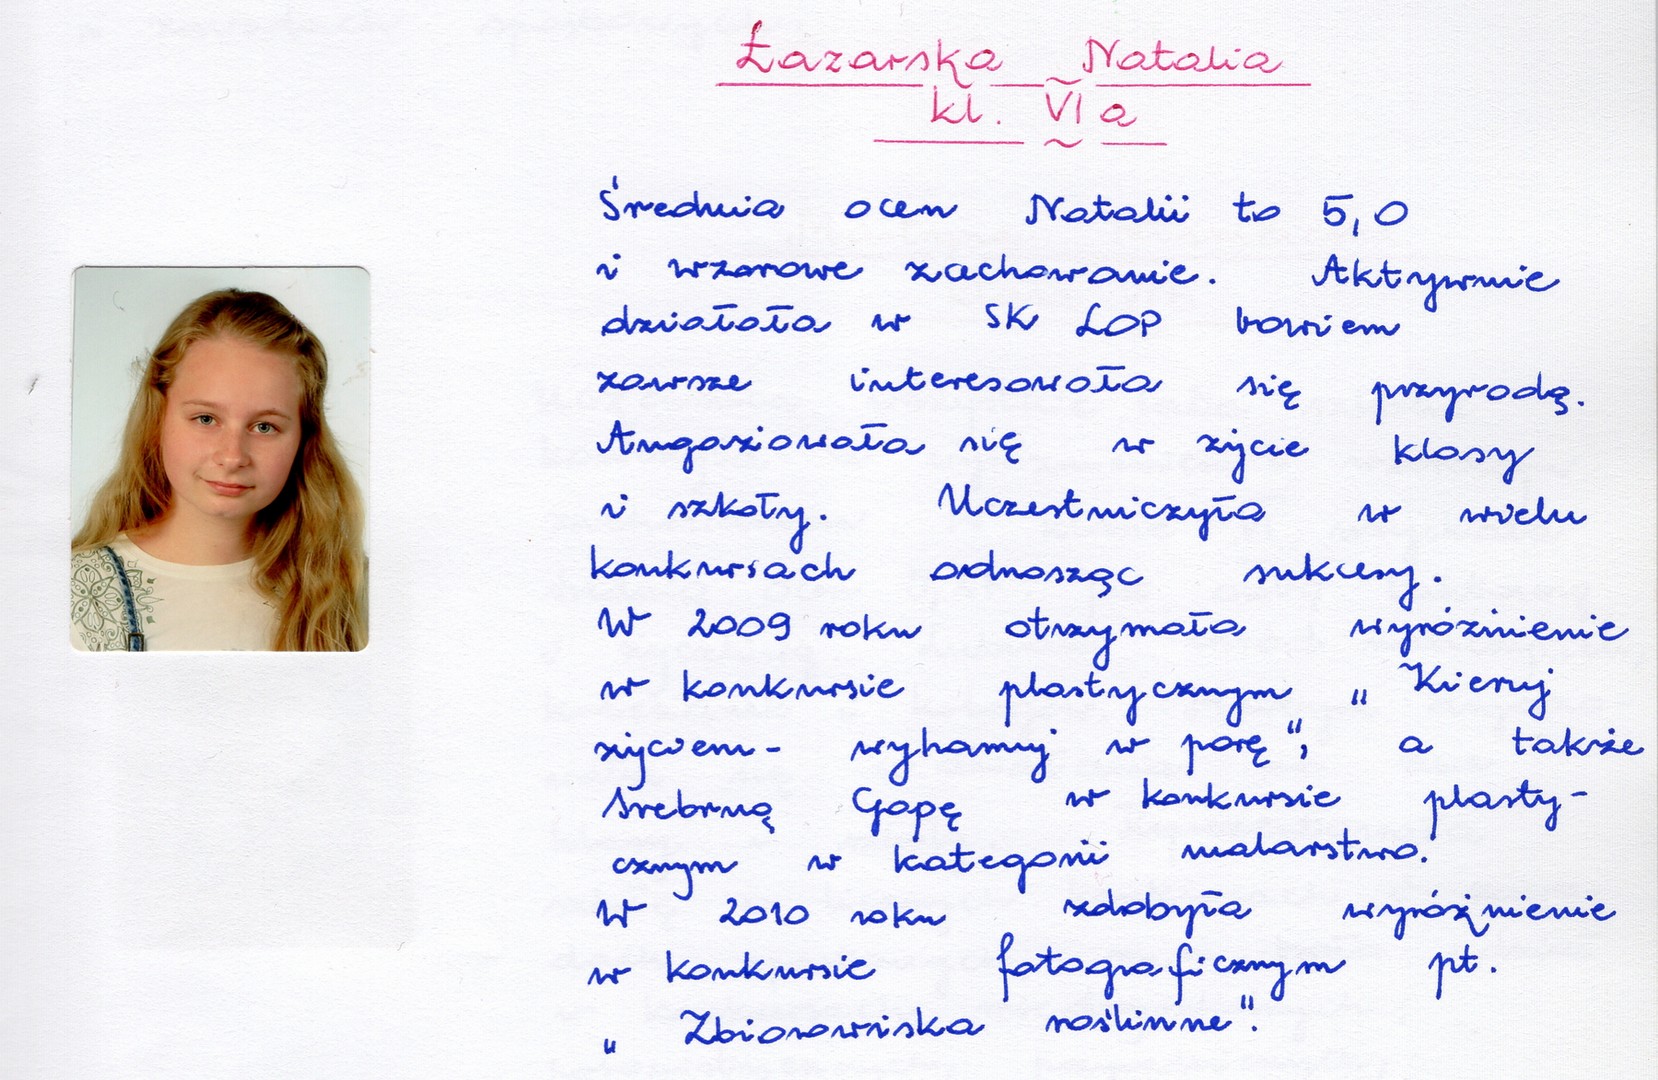 Łazarska Natalia
kl. VI a
Średnia ocen Natalii to 5,0
i wzorowe zachowanie. Aktywnie
działała w SK LOP bowiem
zawsze interesowała się przyrodą.
Angażowała się w życie klasy
i szkoły. Uczestniczyła w wielu
konkursach odnosząc sukcesy.
W 2009 roku otrzymała wyróżnienie
w konkursie plastycznym „Kieruj
życiem - wyhamuj w porę", a także
Srebrną Gapę w konkursie plasty-
cznym w kategorii malarstwo.
W 2010 roku zdobyła wyróżnienie
w konkursie fotograficznym pt.
„Zbiorowiska roślinne".